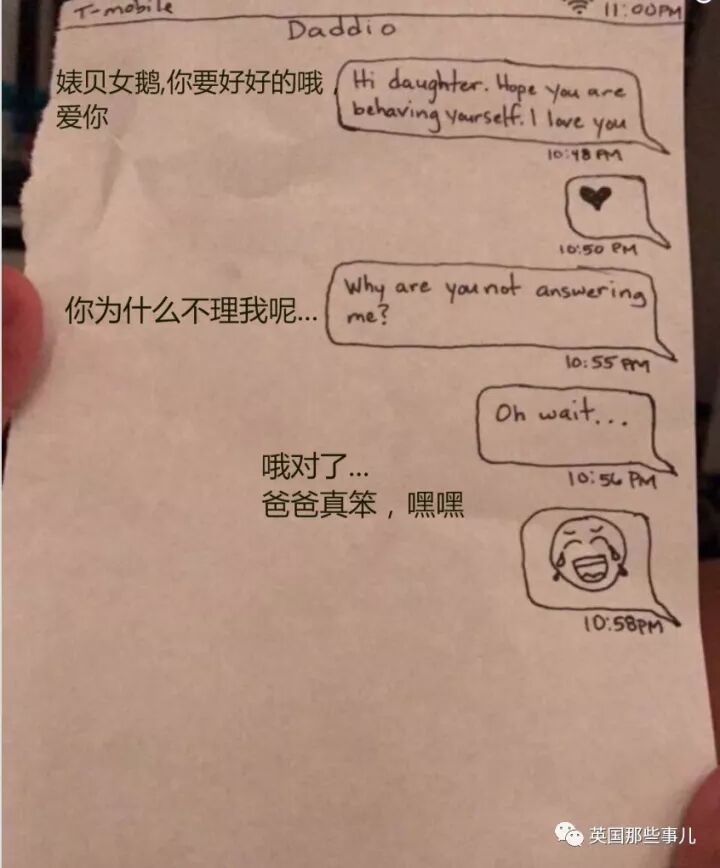 T-mobile 11:00PM
Daddio
婊贝女鹅,你要好好的哦，
爱你
Hi daughter. Hope you are
behaving yourself. I love you
10:48 PM
10:50 PM
你为什么不理我呢...
Why are you not answering
me?
10:55 PM
Oh wait...
10:56 PM
哦对了...
爸爸真笨，嘿嘿
10:58PM
英国那些事儿